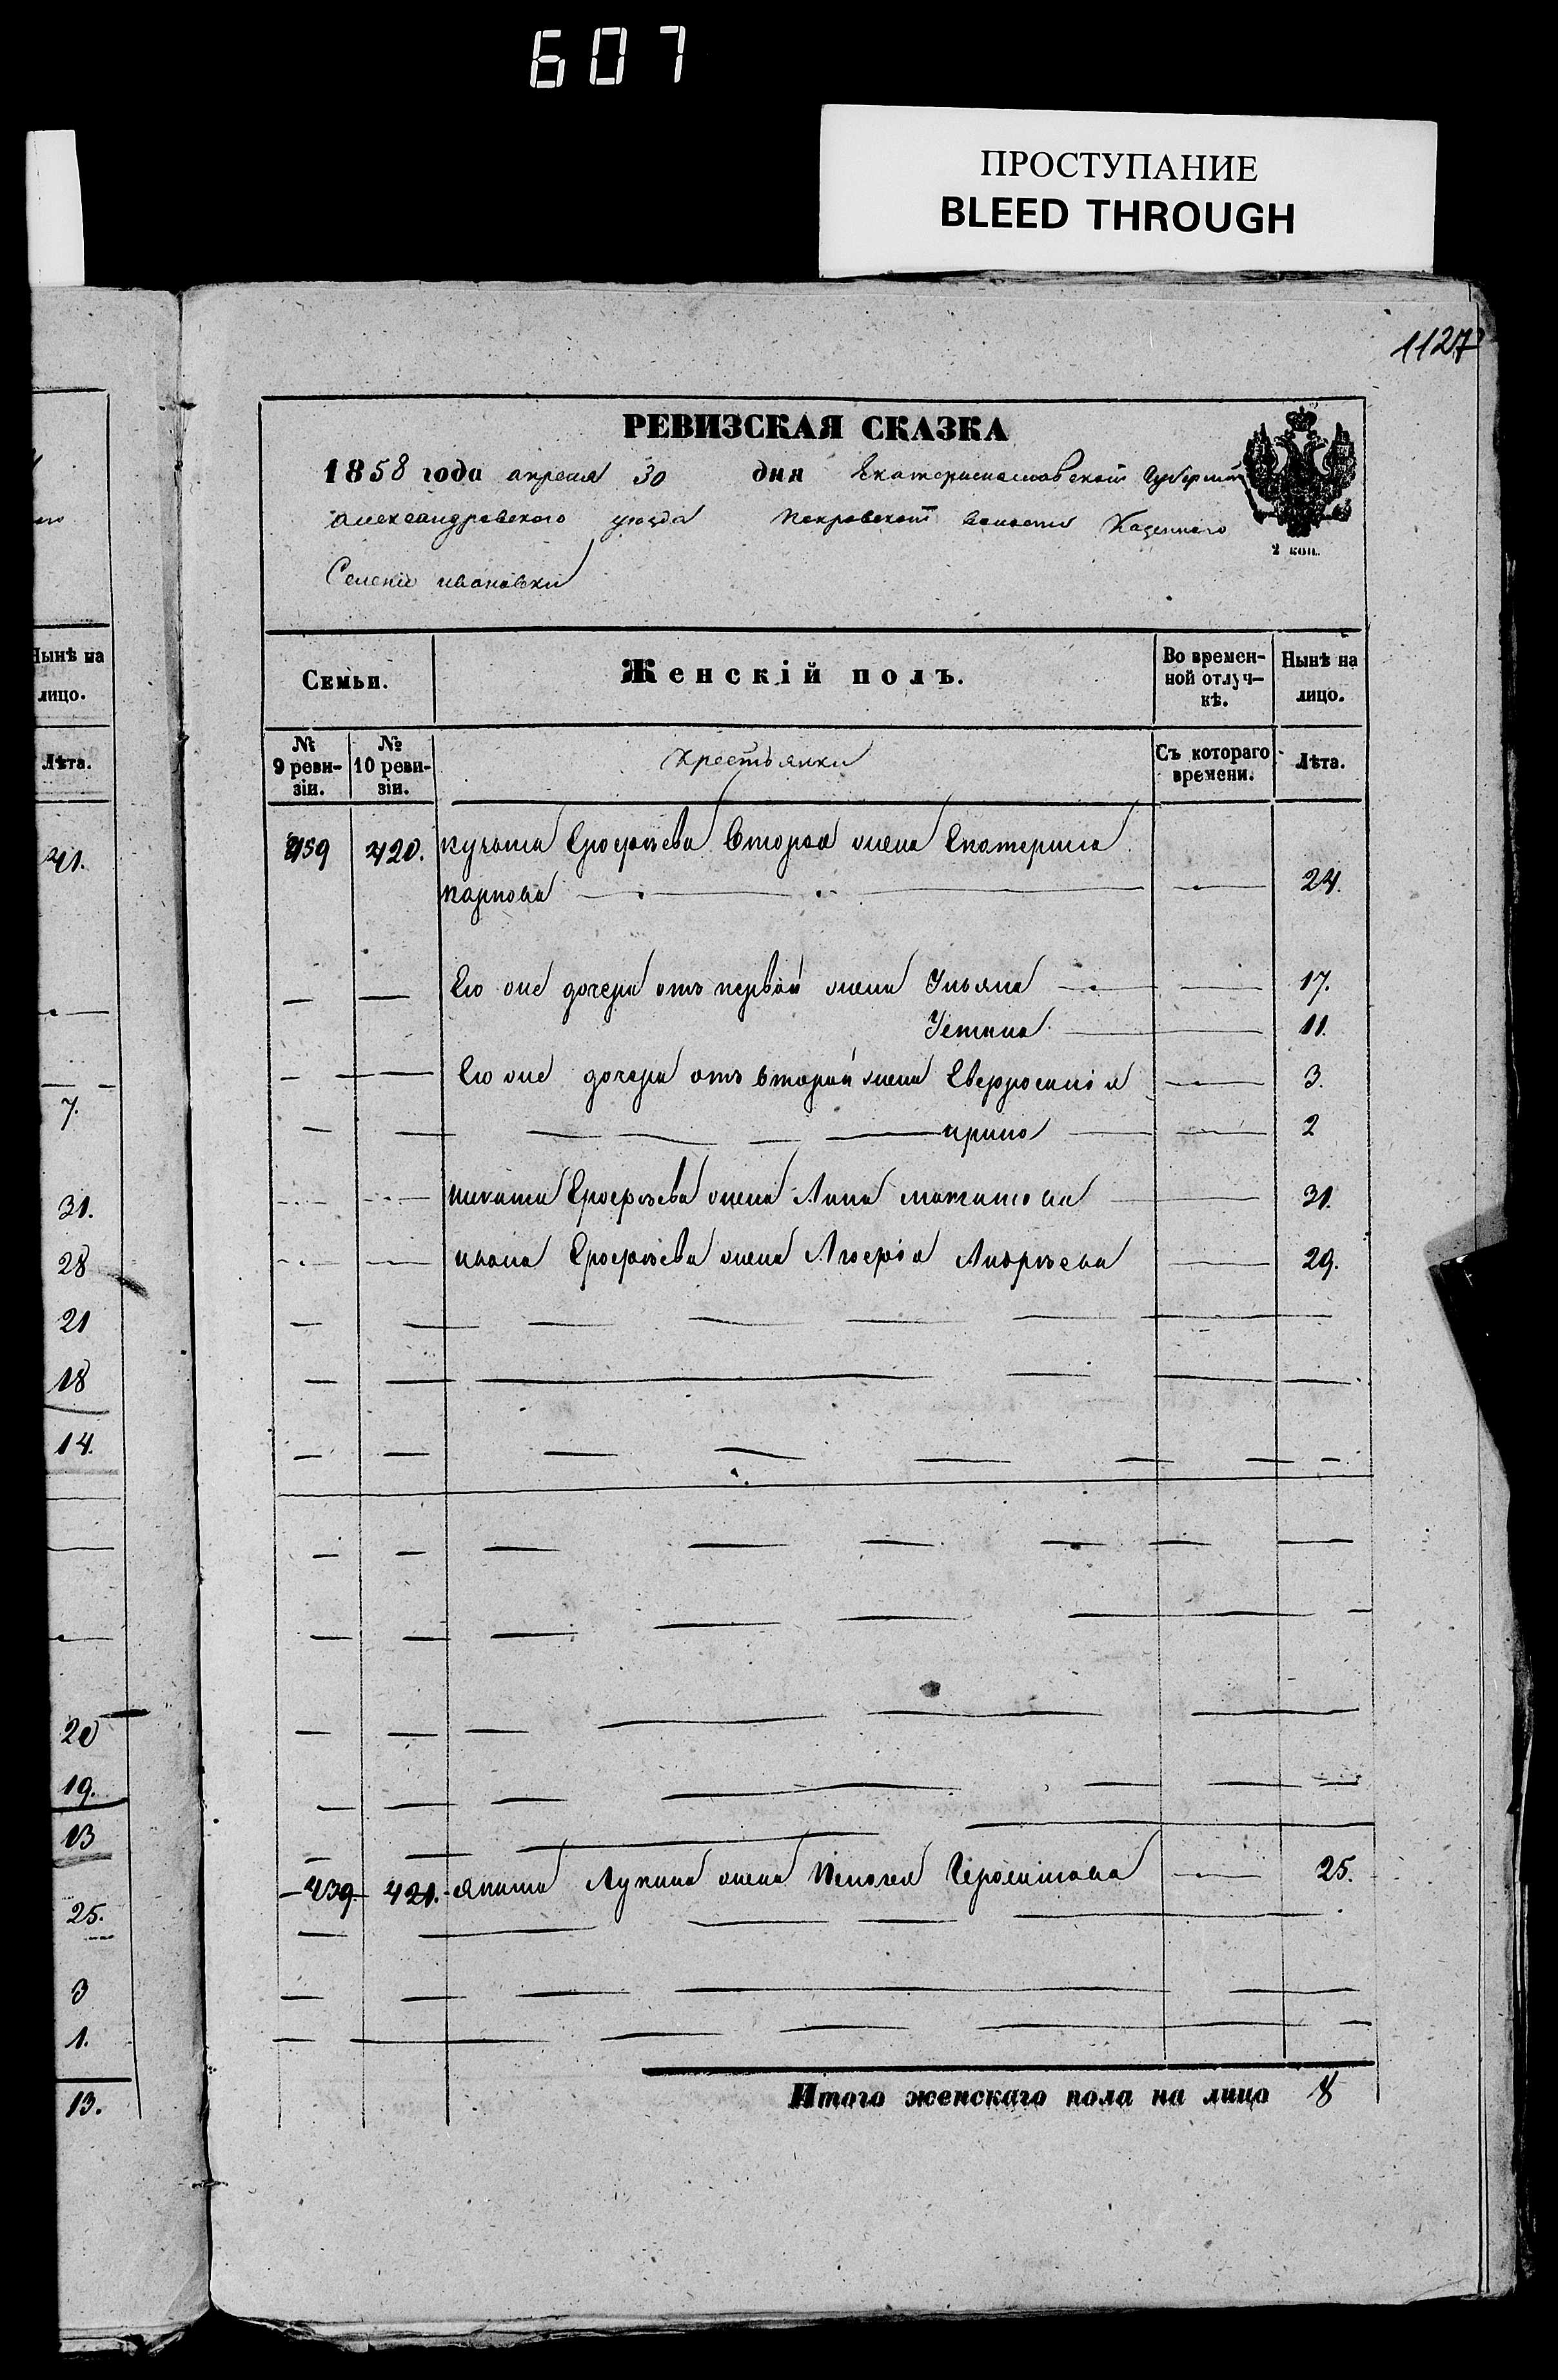 607
ПРОСТУПАНИЕ
BLEED THROUGH
1127
РЕВИЗСКАЯ СКАЗКА
1858 года апреля 30 дня Екатеринославской Губернии
Александровского уезда Покровской волости Казенного
Селения ивановки
2 коп.
Семьи. Женскій полъ. Во времен-ной отлуч-кѣ. Нынѣ на лицо.
№ 9 реви-зіи. № 10 реви-зіи. Крестьянки Съ котораго времени. Лѣта.
459 420. Ерофѣева Вторая жена Екатерина
карпова 24.
Его же дочери отъ первой жены Ульяна 17.
Устина 11.
Его же дочери отъ второй жены Евфросинія 3.
ирина 2
никиты Ерофѣева жена Анна 31.
ивана Ерофѣева жена Андрѣева 29.
439 421. якима Лукина жена 25.
Итого женскаго пола на лицо 8
Нынѣ на
лицо.
Лѣта.
41.
7.
31.
28
21
18
14.
20
19.
13
25.
3
1.
13.